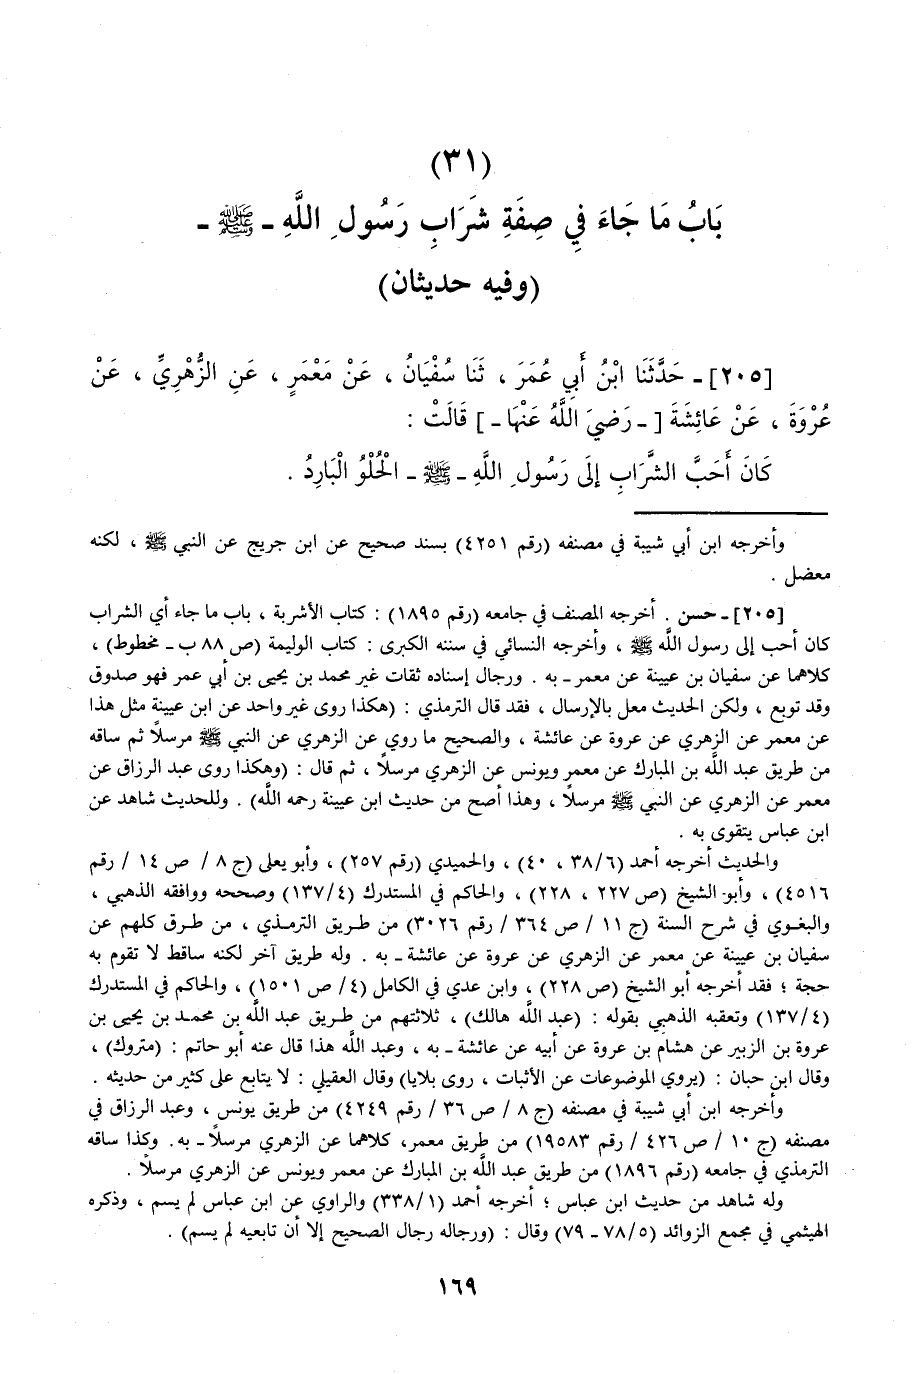 (٣١)
بَابُ مَا جَاءَ فِي صِفَةِ شَرَابِ رَسُولِ اللَّهِ ـ ﷺ ـ
(وفيه حديثان)
[٢٠٥] ـ حَدَّثَنَا ابْنُ أَبِي عُمَرَ ، ثَنَا سُفْيَانُ ، عَنْ مَعْمَرٍ ، عَنِ الزُّهْرِيِّ ، عَنْ
عُرْوَةَ ، عَنْ عَائِشَةَ [ ـ رَضِيَ اللَّهُ عَنْهَا ـ ] قَالَتْ :
كَانَ أَحَبَّ الشَّرَابِ إِلَى رَسُولِ اللَّهِ ـ ﷺ ـ الْحُلْوُ الْبَارِدُ .
وأخرجه ابن أبي شيبة في مصنفه (رقم ٤٢٥١) بسند صحيح عن ابن جريج عن النبي ﷺ ، لكنه
معضل .
[٢٠٥] ـ حسن . أخرجه المصنف في جامعه (رقم ١٨٩٥) : كتاب الأشربة ، باب ما جاء أي الشراب
كان أحب إلى رسول اللَّه ﷺ ، وأخرجه النسائي في سننه الكبرى : كتاب الوليمة (ص ٨٨ ب ـ مخطوط) ،
كلاهما عن سفيان بن عيينة عن معمر ـ به . ورجال إسناده ثقات غير محمد بن يحيى بن أبي عمر فهو صدوق
وقد توبع ، ولكن الحديث معل بالإرسال ، فقد قال الترمذي : (هكذا روى غير واحد عن ابن عيينة مثل هذا
عن معمر عن الزهري عن عروة عن عائشة ، والصحيح ما روي عن الزهري عن النبي ﷺ مرسلاً ثم ساقه
من طريق عبد اللَّه بن المبارك عن معمر ويونس عن الزهري مرسلاً ، ثم قال : (وهكذا روى عبد الرزاق عن
معمر عن الزهري عن النبي ﷺ مرسلاً ، وهذا أصح من حديث ابن عيينة رحمه اللَّه) . وللحديث شاهد عن
ابن عباس يتقوى به .
والحديث أخرجه أحمد (٣٨/٦ ، ٤٠) ، والحميدي (رقم ٢٥٧) ، وأبو يعلى (ج ٨ / ص ١٤ / رقم
٤٥١٦) ، وأبو الشيخ (ص ٢٢٧ ، ٢٢٨) ، والحاكم في المستدرك (١٣٧/٤) وصححه ووافقه الذهبي ،
والبغوي في شرح السنة (ج ١١ / ص ٣٦٤ / رقم ٣٠٢٦) من طريق الترمذي ، من طرق كلهم عن
سفيان بن عيينة عن معمر عن الزهري عن عروة عن عائشة ـ به . وله طريق آخر لكنه ساقط لا تقوم به
حجة ؛ فقد أخرجه أبو الشيخ (ص ٢٢٨) ، وابن عدي في الكامل (٤/ ص ١٥٠١) ، والحاكم في المستدرك
(١٣٧/٤) وتعقبه الذهبي بقوله : (عبد اللَّه هالك) ، ثلاثتهم من طريق عبد اللَّه بن محمد بن يحيى بن
عروة بن الزبير عن هشام بن عروة عن أبيه عن عائشة ـ به ، وعبد اللَّه هذا قال عنه أبو حاتم : (متروك) ،
وقال ابن حبان : (يروي الموضوعات عن الأثبات ، روى بلايا) وقال العقيلي : لا يتابع على كثير من حديثه .
وأخرجه ابن أبي شيبة في مصنفه (ج ٨ / ص ٣٦ / رقم ٤٢٤٩) من طريق يونس ، وعبد الرزاق في
مصنفه (ج ١٠ / ص ٤٢٦ / رقم ١٩٥٨٣) من طريق معمر، كلاهما عن الزهري مرسلاً ـ به. وكذا ساقه
الترمذي في جامعه (رقم ١٨٩٦) من طريق عبد اللَّه بن المبارك عن معمر ويونس عن الزهري مرسلاً .
وله شاهد من حديث ابن عباس ؛ أخرجه أحمد (٣٣٨/١) والراوي عن ابن عباس لم يسم ، وذكره
الهيثمي في مجمع الزوائد (٧٨/٥ ـ ٧٩) وقال : (ورجاله رجال الصحيح إلا أن تابعيه لم يسم) .
١٦٩